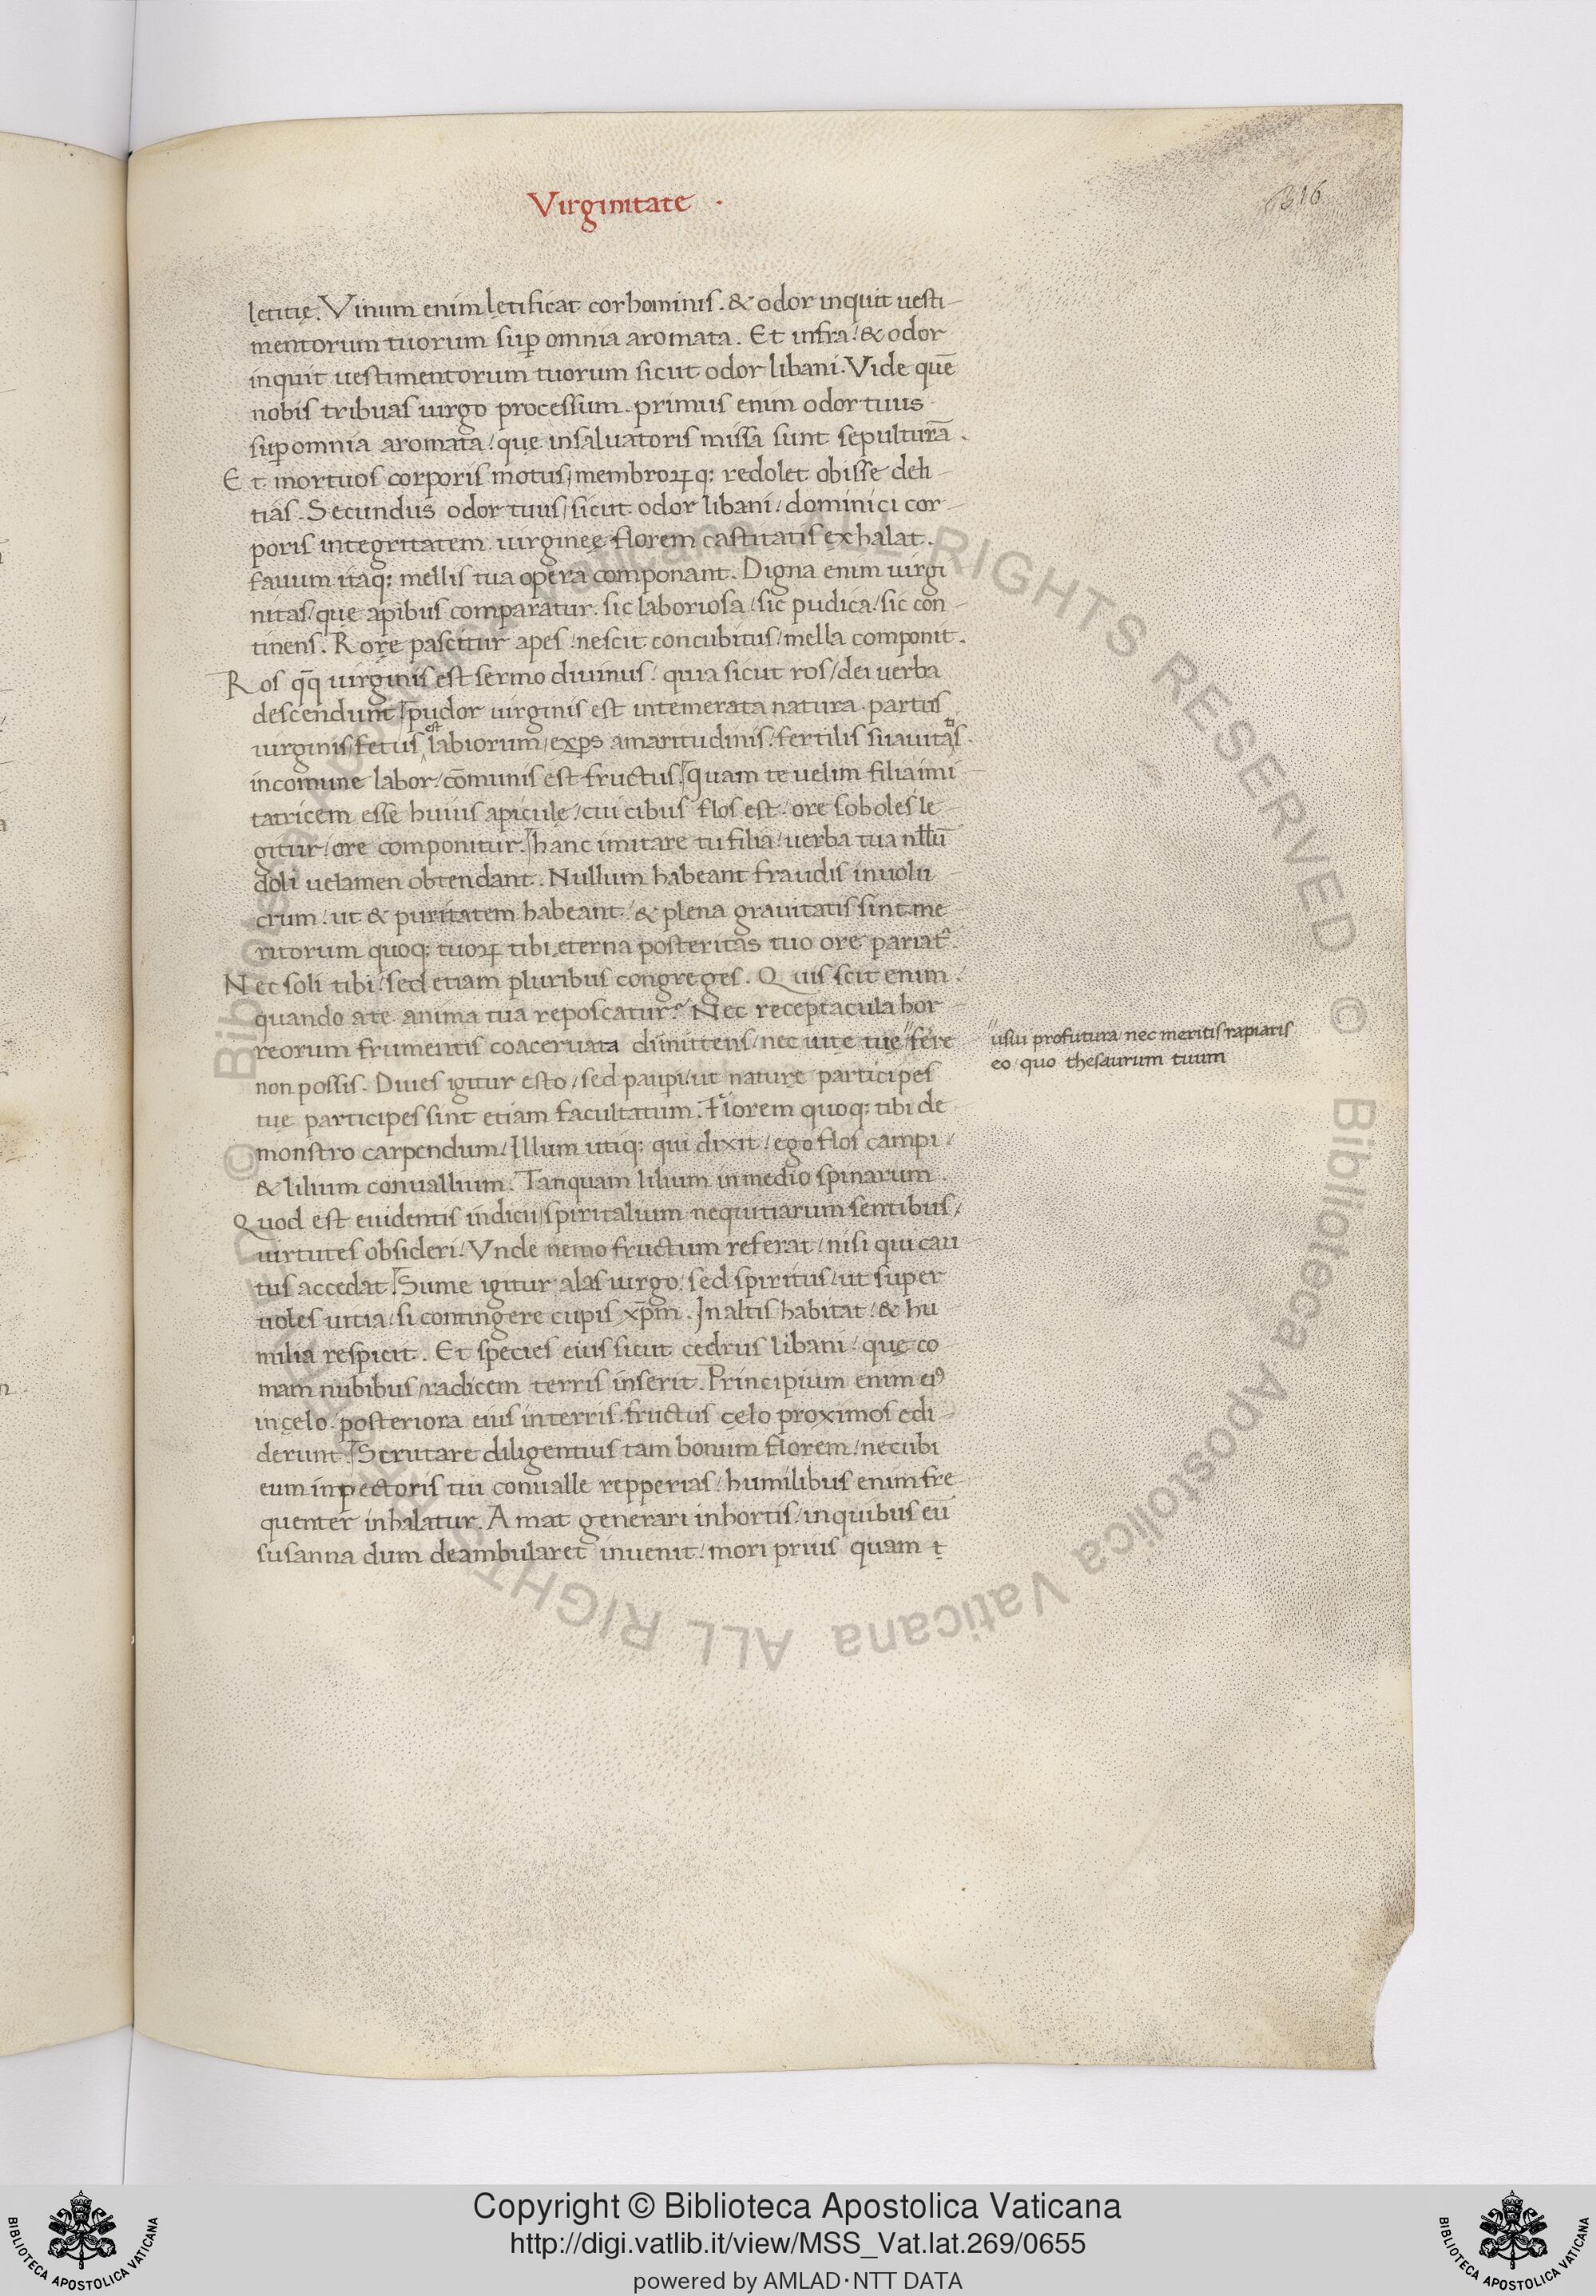 Virginitate ·
316
lętitię. Vinum enim lętificat cor hominis. & odor inquit uesti-
mentorum tuorum sup̄ omnia aromata. Et infra: & odor
inquit uestimentorum tuorum sicut odor libani. Vide quē
nobis tribuas uirgo processum. primus enim odor tuus
sup̄ omnia aromata: que in saluatoris missa sunt sepulturā.
Et mortuos corporis motus, membroꝝq; redolet obisse deli-
tias. Secundus odor tuus, sicut odor libani, dominici cor-
poris integritatem uirgineę florem castitatis exhalat.
fauum itaq; mellis tua opera componant. Digna enim uirgi
nitas, quę apibus comparatur. sic laboriosa, sic pudica, sic con-
tinens. Rore pascitur apes, nescit concubitus, mella componit.
Ros q̄q uirginis est sermo diuinus, quia sicut ros, dei uerba
descendunt. pudor uirginis est intemerata natura. partus
uirginis, fetus est labiorum, exp̄s amaritudinis, fertilis suauitatis.
in comune labor, cōmunis est fructus. quam te uelim filia imi
tatricem esse huius apiculę, cui cibus flos est, ore soboles le-
gitur, ore componitur. hanc imitare tu filia, uerba tua nllū
doli uelamen obtendant. Nullum habeant fraudis inuolu
crum, ut & puritatem habeant, & plena grauitatis sint. me
ritorum quoq; tuoꝝ tibi ęterna posteritas tuo ore pariat᷑.
Nec soli tibi, sed etiam pluribus congreges. Quis scit enim,
quando a te anima tua reposcatur? Nec receptacula hor
reorum frumentis coaceruata dimittens, nec uitę tuę "ferre
"usui profutura nec meritis, rapiaris
eo, quo thesaurum tuum
non possis. Diues igitur esto, sed paup̄i, ut naturę participes
tuę participes sint etiam facultatum. Florem quoq; tibi de
monstro carpendum, Illum utiq; qui dixit, ego flos campi,
& lilium conuallium. Tanquam lilium in medio spinarum.
Quod est euidentis indicii, spiritalium nequitiarum sentibus,
uirtutes obsideri. Vnde nemo fructum referat, nisi qui cau
tus accedat. Sume igitur alas uirgo, sed spiritus, ut super
uoles uitia, si contingere cupis xp̄m. In altis habitat, & hu
milia respicit. Et species eius sicut cedrus libani, quę co
mam nubibus, radicem terris inserit. Principium enim eiꝰ
in cęlo. posteriora eius in terris. fructus cęlo proximos edi-
derunt. Scrutare diligentius tam bonum florem, necubi
eum in pectoris tui conualle repperias, humilibus enim fre
quenter inhalatur. Amat generari in hortis, in quibus eū
susanna dum deambularet inuenit, mori prius quam
© Biblioteca Apostolica Vaticana ALL RIGHTS RESERVED
Copyright © Biblioteca Apostolica Vaticana
http://digi.vatlib.it/view/MSS_Vat.lat.269/0655
powered by AMLAD·NTT DATA
BIBLIOTECA APOSTOLICA VATICANA
BIBLIOTECA APOSTOLICA VATICANA